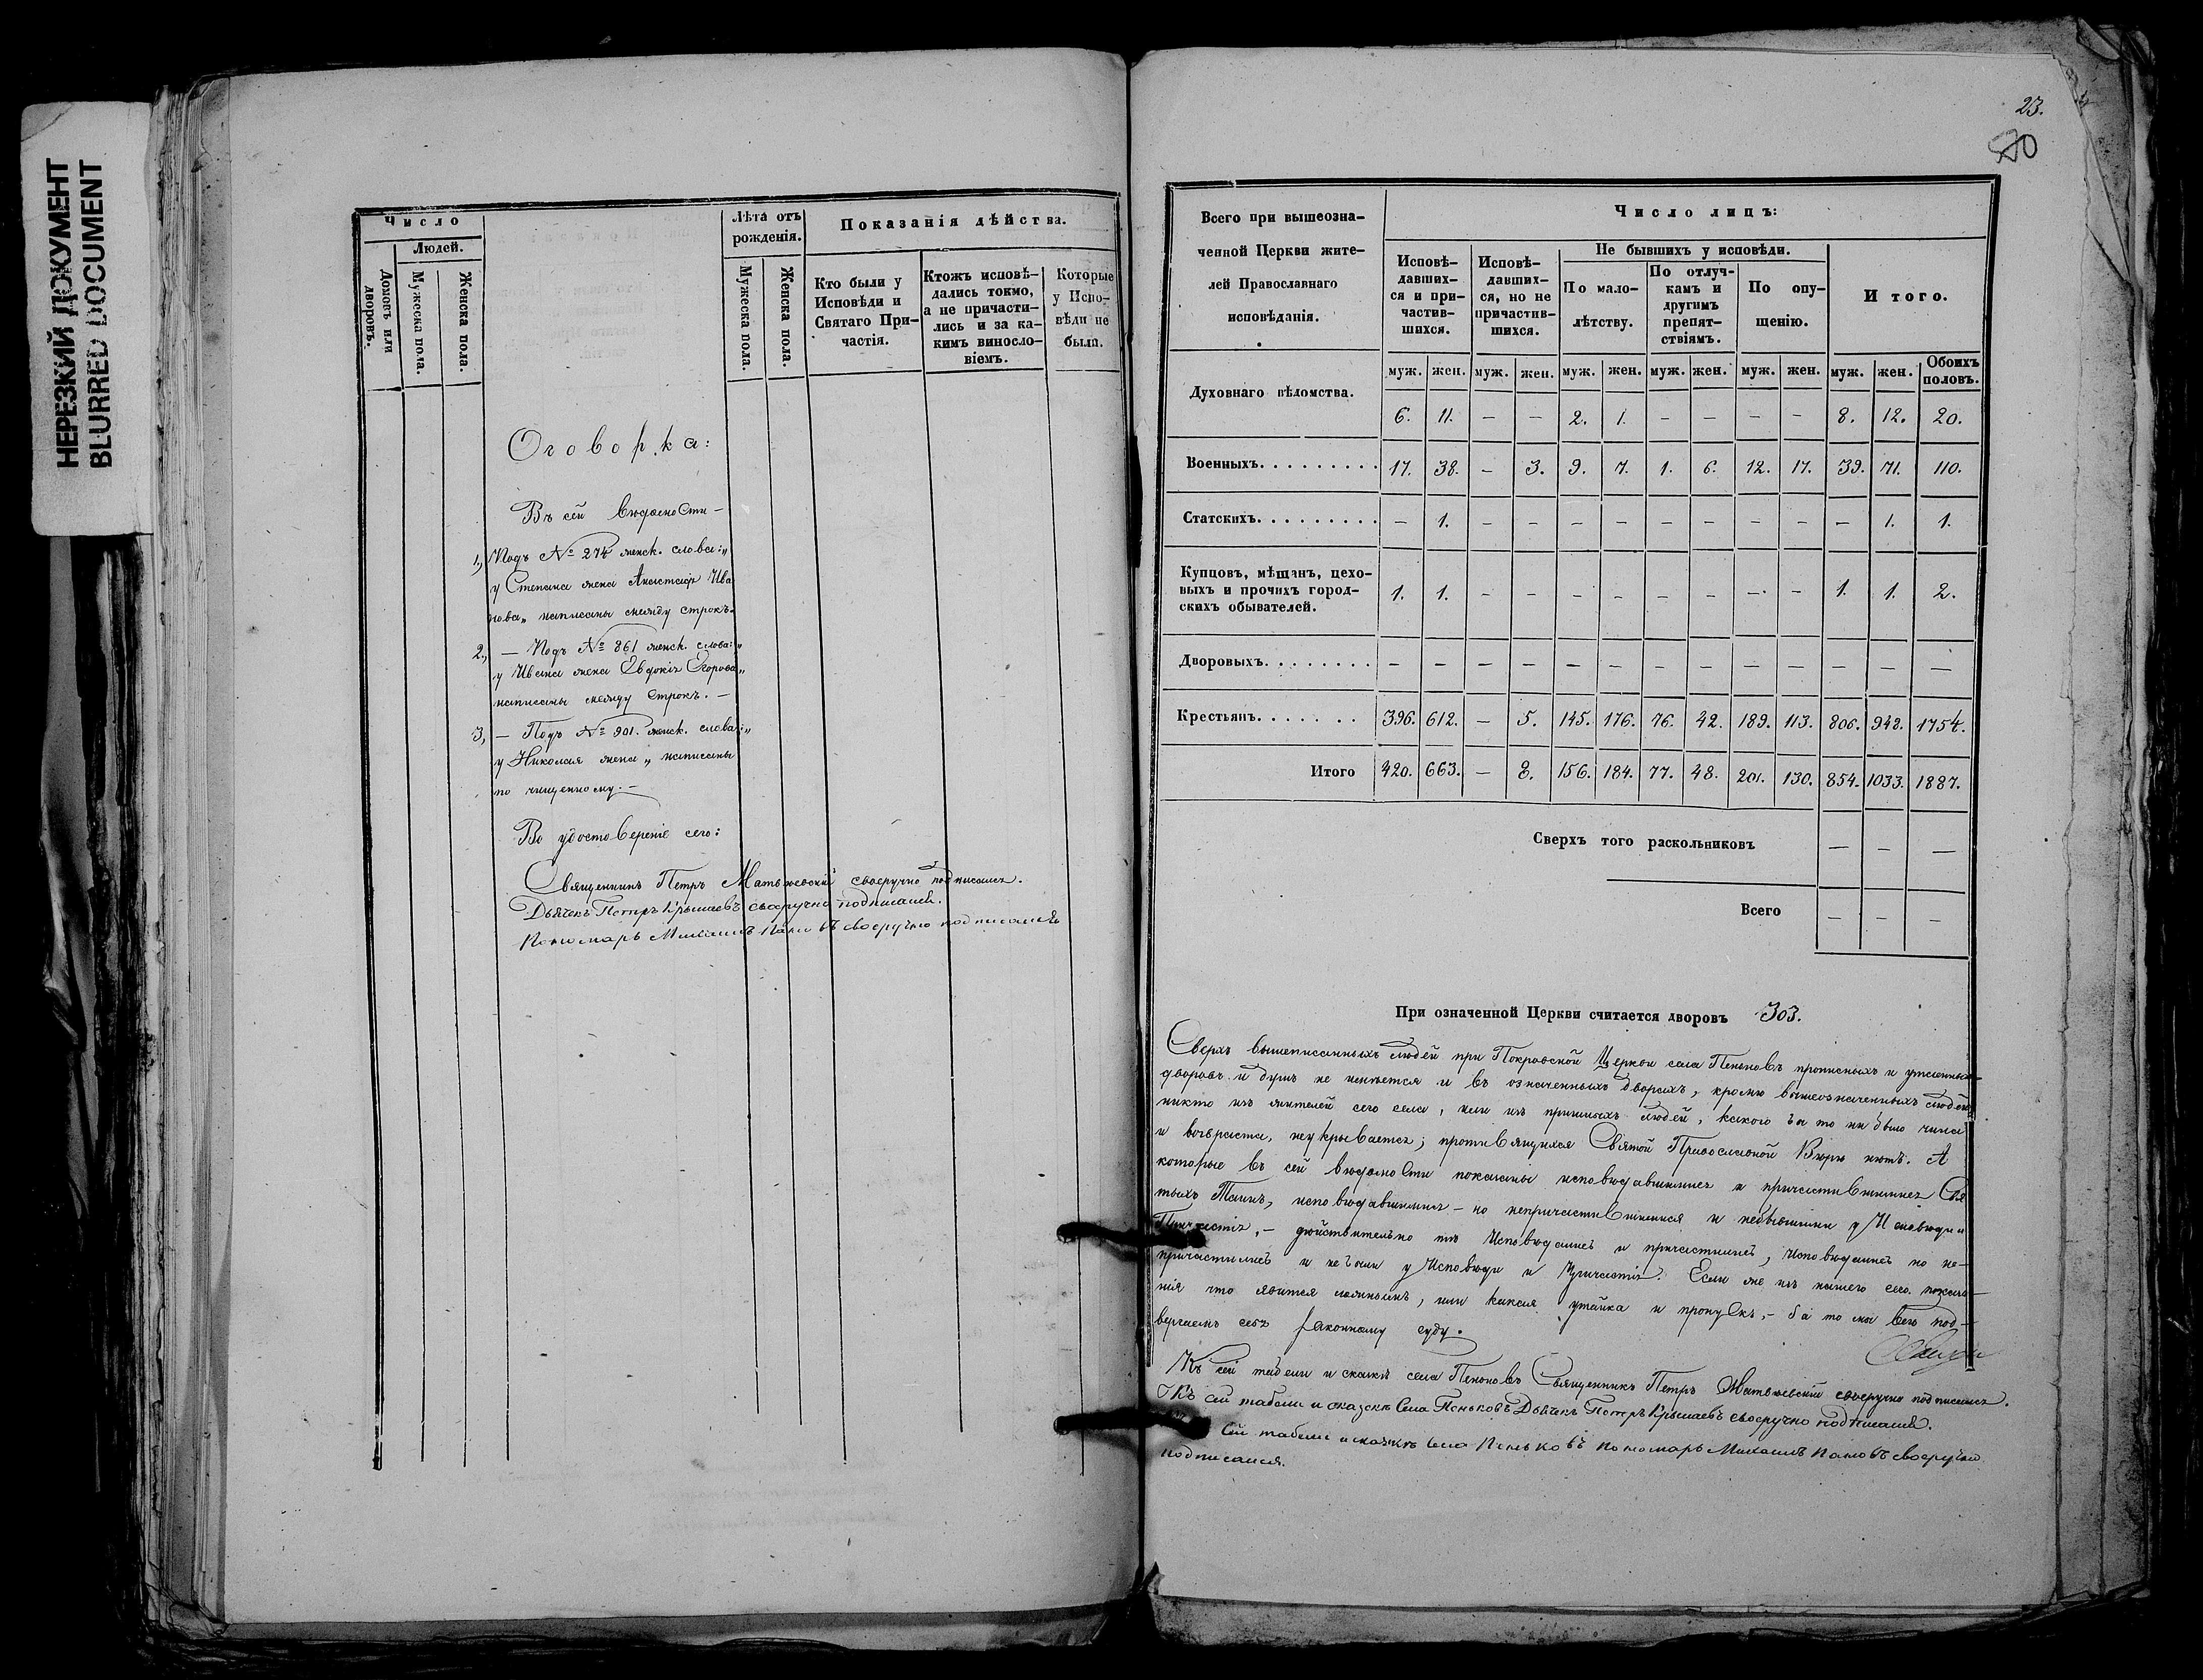 НЕРЕЗКИЙ ДОКУМЕНТ
BLURRED DOCUMENT
Число
Людей.
Домовъ или дворовъ.
Мужеска пола.
Женска пола.
Лѣта отъ рожденія.
Мужеска пола.
Женска пола.
Показанія дѣйства.
Кто были у Исповѣди и Святаго Причастія.
Ктожъ исповѣдались токмо, а не причастились и за какимъ винословіемъ.
Которые у Исповѣди не были.
Оговорка:
Въ сей вѣдомости –
1, Подъ № 274 женск. слова: „
у Степана жена Анастасія Ива
нова„ написаны между строкъ.
2, – Подъ № 861 женск. слова: „
у Ивана жена Евдокія Егорова„
написаны между строкъ. –
3, – Подъ № 901. женск. слова: „
у Николая жена „ написаны
по чищенному. –
Во удостовереніе сего:
Священникъ Петръ Матвѣевскій своеручно подписался.
Дьячекъ Петръ Крылаевъ своеручно подписался.
Пономарь Михаилъ своеручно подписался
23.
Всего при вышеозна-
ченной Церкви жите-
лей Православнаго
исповѣданія.
Число лицъ:
Исповѣ-
давших-
ся и при-
частив-
шихся.
Исповѣ-
давших-
ся, но не
причастив-
шихся.
Не бывшихъ у исповѣди.
По мало-
лѣтству.
По отлуч-
камъ и
другимъ
препят-
ствіямъ.
По опу-
щенію.
Итого.
муж. жен. муж. жен. муж. жен. муж. жен. муж. жен. муж. жен. Обоихъ половъ.
Духовнаго вѣдомства. 6. 11. – – 2. 1. – – – – 8. 12. 20.
Военныхъ. . . . . . . . . 17. 38. – 3. 9. 7. 1. 6. 12. 17. 39. 71. 110.
Статскихъ. . . . . . . . . – 1. – – – – – – – – – 1. 1.
Купцовъ, мѣщанъ, цехо-
выхъ и прочихъ город-
скихъ обывателей. 1. 1. – – – – – – – – 1. 1. 2.
Дворовыхъ. . . . . . . . – – – – – – – – – – – – –
Крестьянъ. . . . . . . 396. 612. – 5. 145. 176. 76. 42. 189. 113. 806. 948. 1754.
Итого 420. 663. – 8. 156. 184. 77. 48. 201. 130. 854. 1033. 1887.
Сверхъ того раскольниковъ – – –
Всего – – –
При означенной Церкви считается дворовъ 303.
Сверхъ вышеписанныхъ людей при Покровской Церкви села Пеньковъ прописныхъ и утаенныхъ
дворовъ и душъ не имѣется и въ означенныхъ дворахъ, кромѣ вышеозначенныхъ людей
никто изъ жителей сего села, или изъ пришлыхъ людей, какого бы то ни было чина
и возраста, неукрывается; противящихся Святой Православной Вѣрѣ нѣтъ. А
которые въ сей вѣдомости показаны исповѣдавшимися и причастившимися Свя
тыхъ Таинъ, исповѣдавшимися – но непричастившимися и небывшими у Исповѣди и
Причастія, – дѣйствительно тѣ Исповѣдались и причастились, исповѣдались но не-
причастились и не были у Исповѣди и Причастія. Если же изъ нашего сего показа-
нія что явится ложнымъ, или какая утайка и пропускъ, – за то мы все под-
вергаемъ себя законному суду.
Къ сей табели и сказкѣ села Пеньковъ Священникъ Петръ Матвѣевскій своеручно подписался.
Къ сей табели и сказкѣ Села Пеньковъ Дьячекъ Петръ Крылаевъ своеручно подписался.
Сей табели и сказкѣ села Пеньковъ пономарь Михаилъ своеручно
подписался.